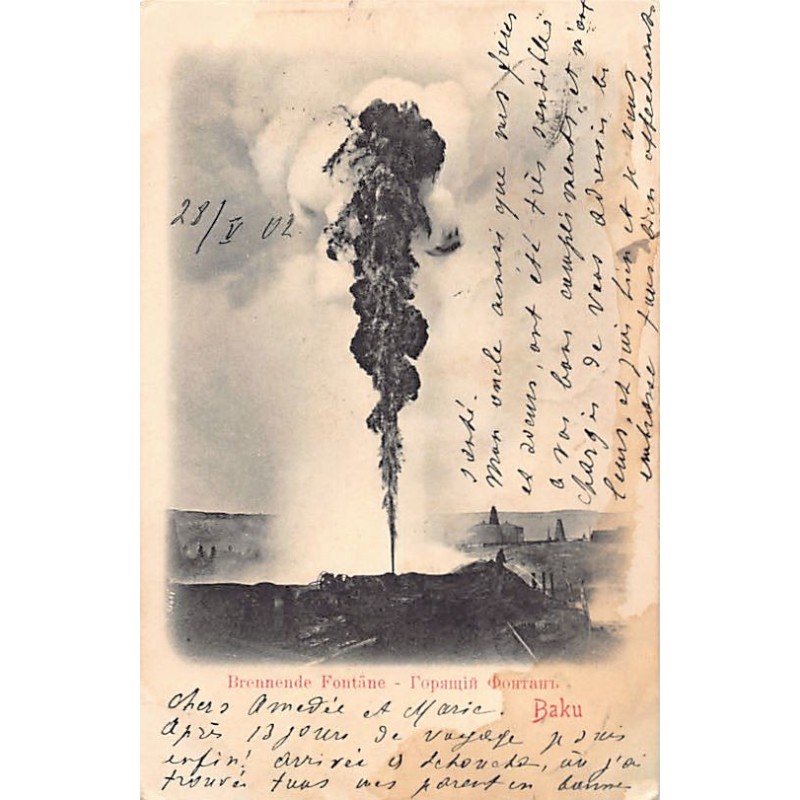 28/V 02
Brennende Fontäne - Горящій Фонтанъ
Baku
Chers Amedée et Marie.
Après 13 jours de voyage je suis
enfin! arrivée à Schoucha, où j'ai
trouvée tous mes parent en bonne
santé.
Mon oncle ainsi que mes frères
et soeurs, ont été très sensibles
a vos bons compliments et m'ont
chargés de vous adresser les
leurs, et je vous
embrasse tous bien affectueus.